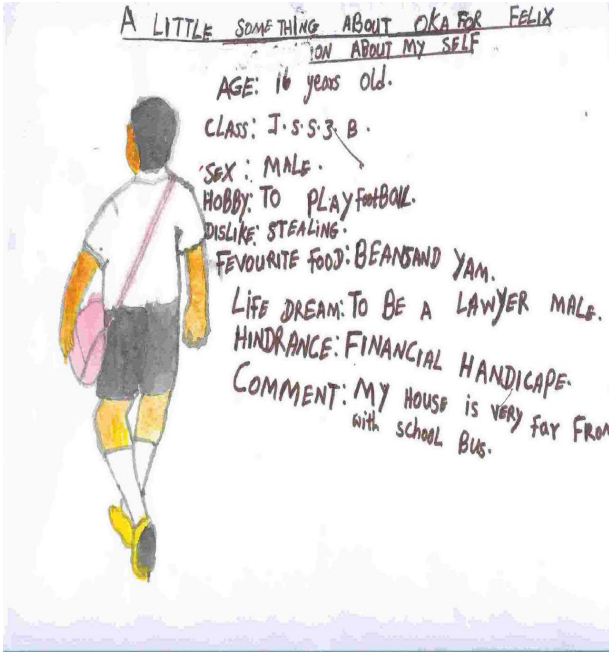 A LITTLE SOMETHING ABOUT OKAFOR FELIX
ION ABOUT MY SELF
AGE: 16 years old.
CLASS: J.S.S.3 B.
SEX: MALE.
HOBBY: TO PLAY FootBALL.
DISLIKE: STEALING.
FEVOURITE FOOD: BEANS AND YAM.
LIFE DREAM: TO BE A LAWYER MALE.
HINDRANCE: FINANCIAL HANDICAPE.
COMMENT: MY HOUSE is VERY far FROM
with school BUS.